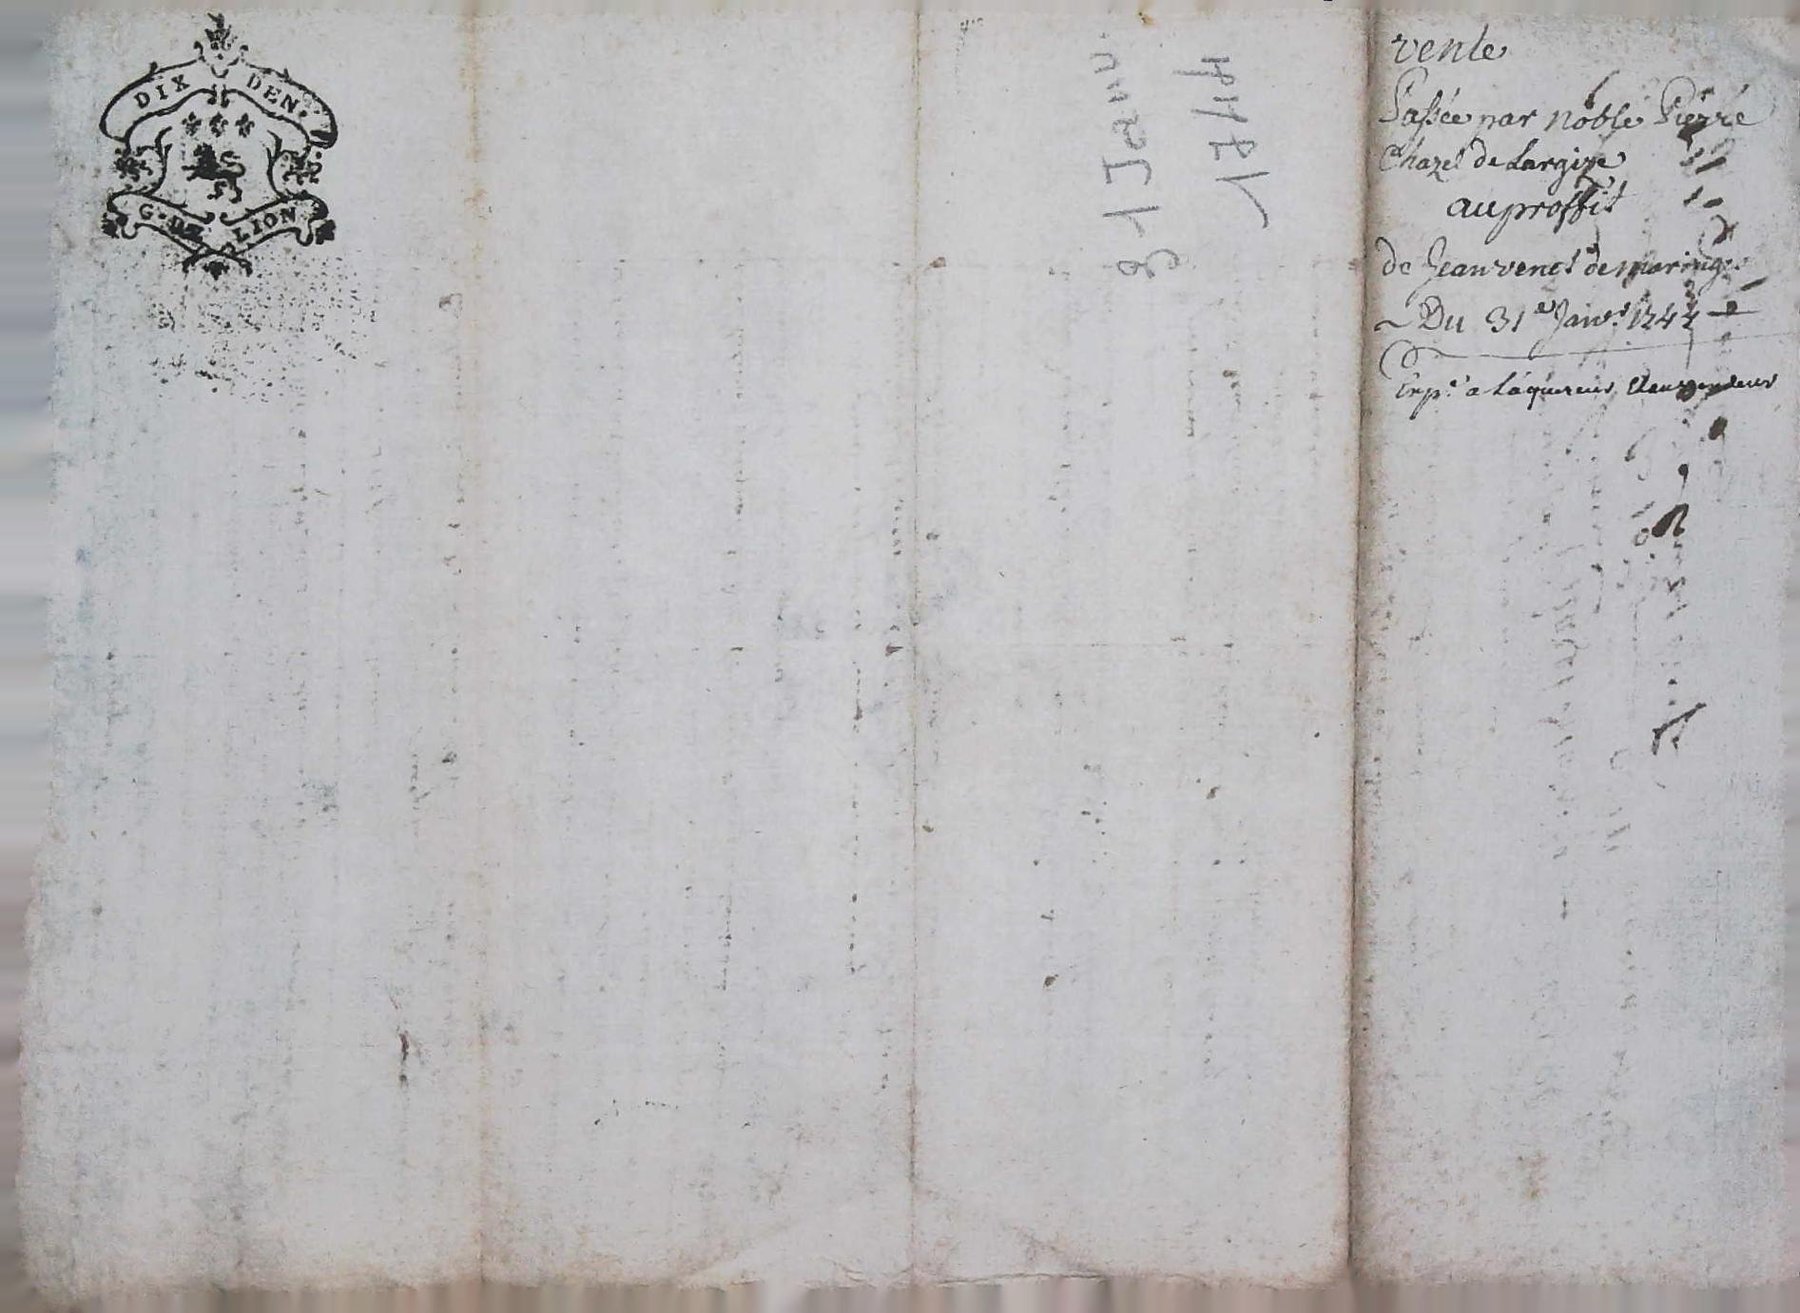 DIX DEN.
G. DE LION
31 Janv.
1744
vente
Passée par noble Pierre
Chazel de Largize
au proffit
de Jean venet de maringe
~ Du 31e Janv.r 1744
Exp.e a laquereur et au vendeur